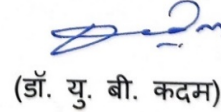 (डॉ. यु. बी. कदम)